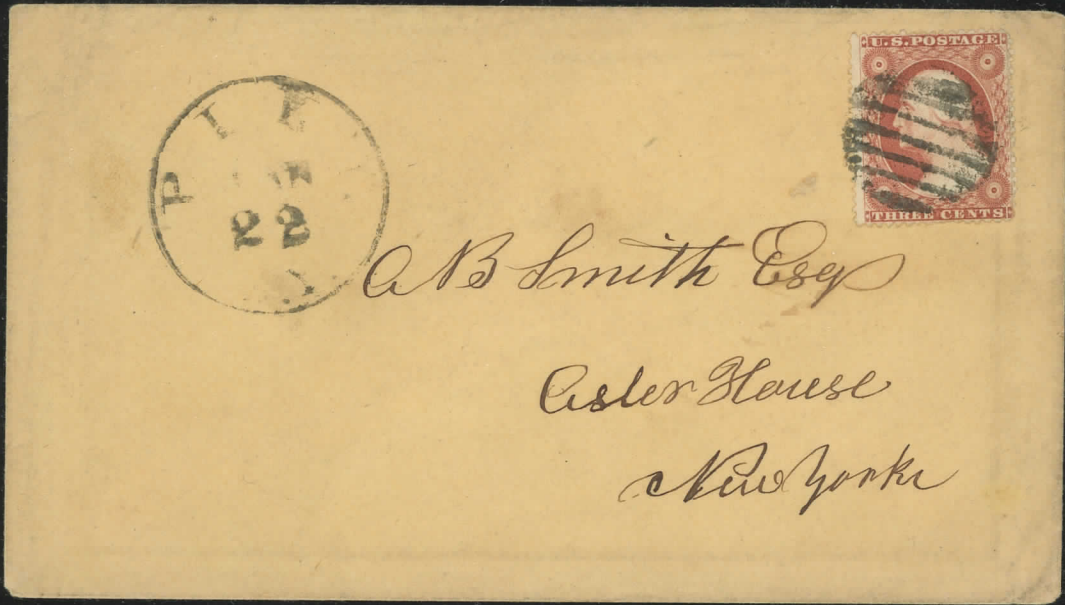 U.S. POSTAGE
THREE CENTS
22
A B Smith Esq
Aster House
New York